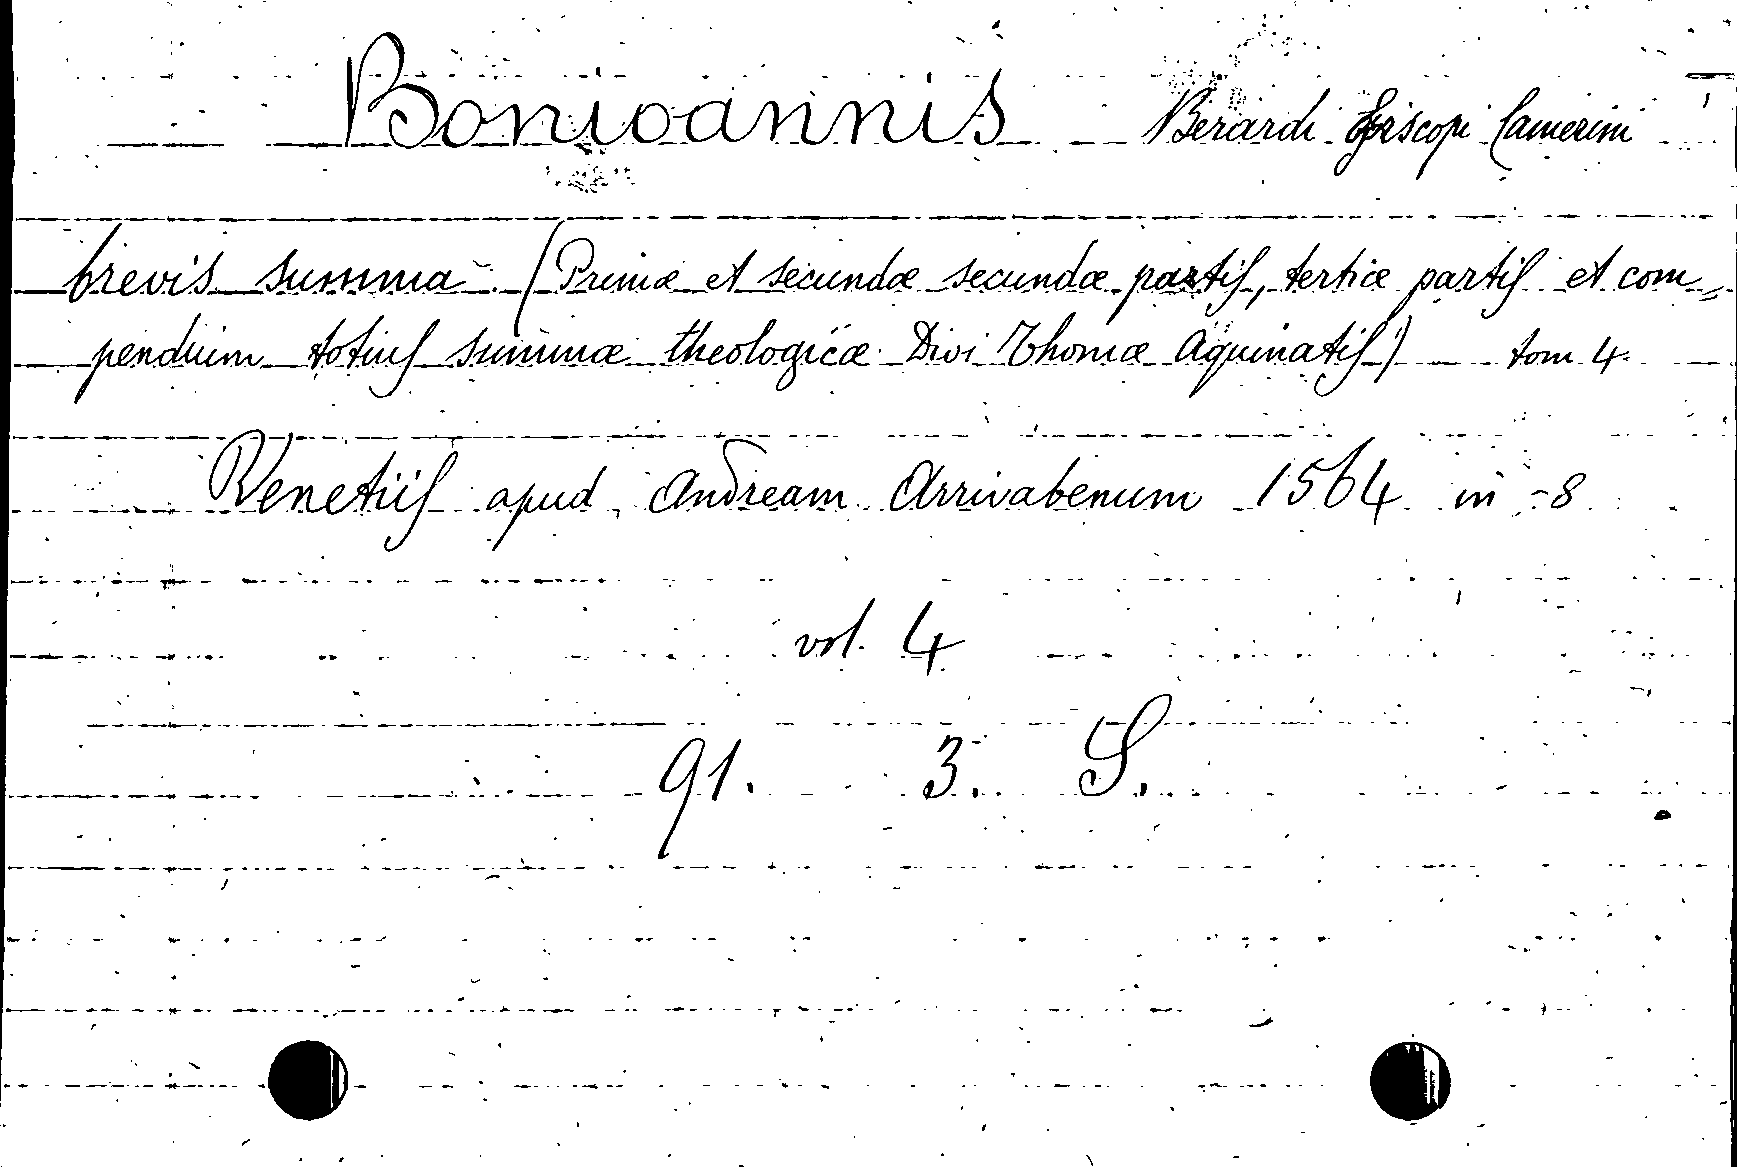 Bonioannis Berardi Episcopi Camerini
brevis summa (Primæ et secundæ secundæ partis, tertiæ partis et com„
pendium totius summæ theologicæ Divi Thomæ Aquinatis) tom 4.
Venetiis apud Andream Arrivabenum 1564 in -8
vol. 4
91. 3. S.